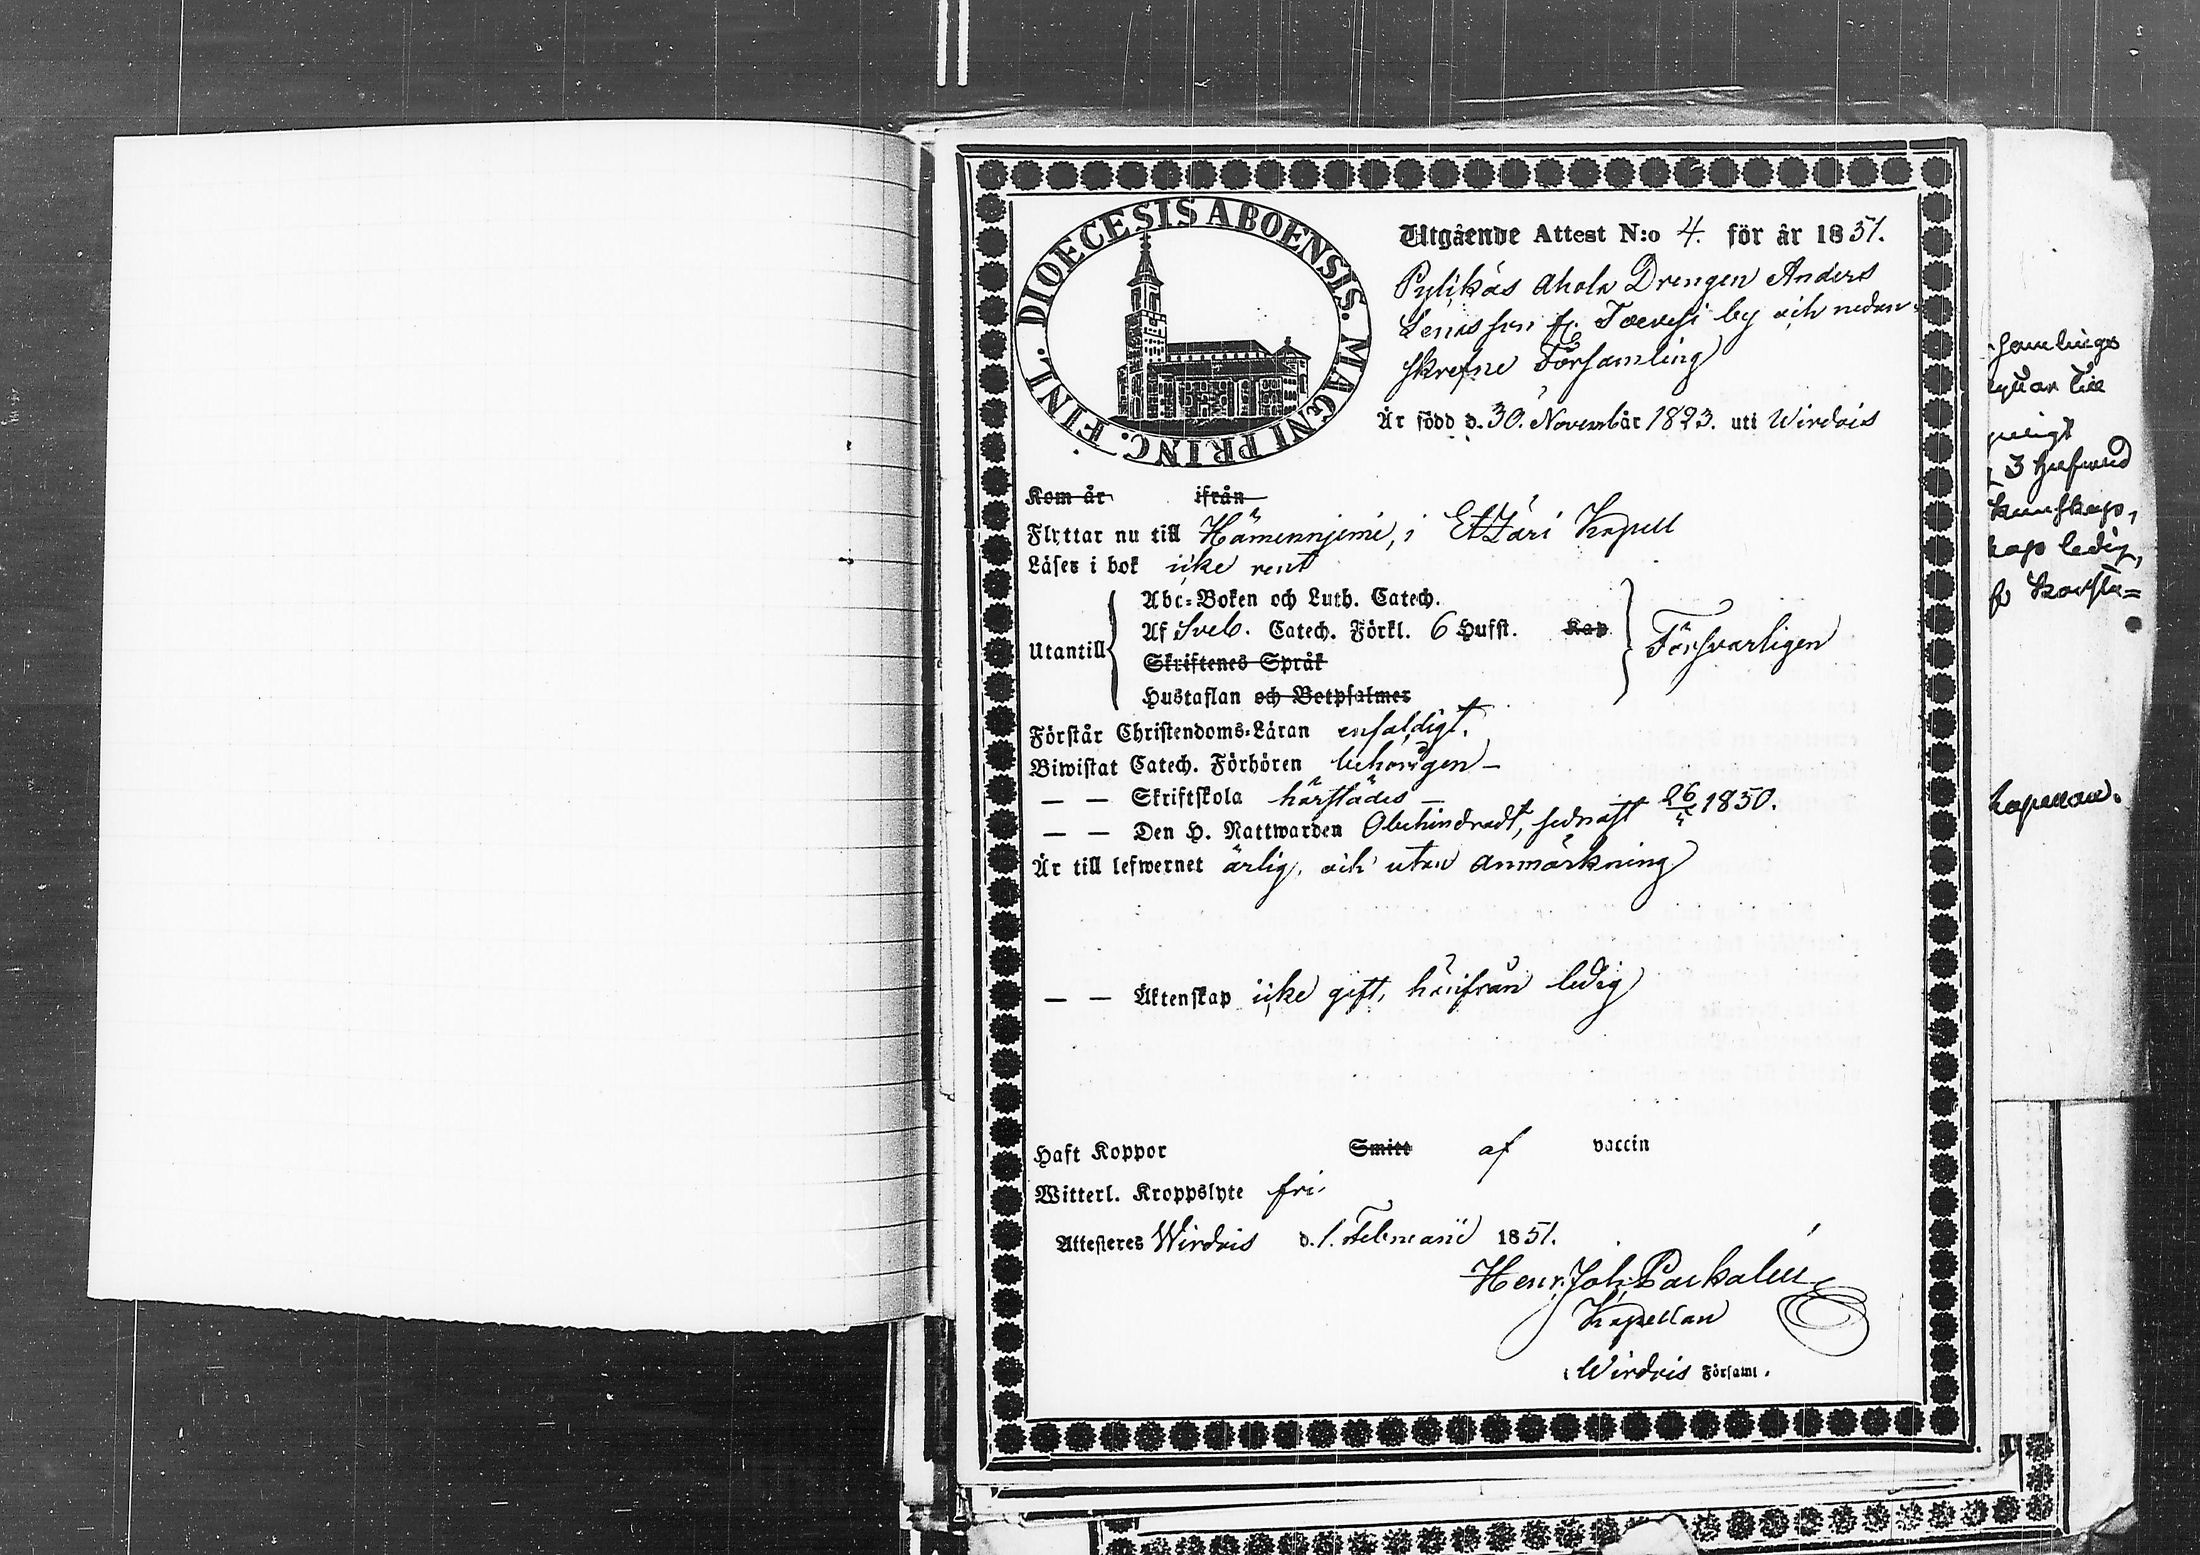 DIOECESIS ABOENSIS. MAGNI PRINC. FINL.
Utgående Attest N:o 4. för år 1851.
Pylikäs Ahola Drengen Anders
by och nedan-
skrefne Församling
Är född d. 30. November 1823. uti Wirdois
Kom år ifrån
Flyttar nu till Hämennjemi, i Etzäri Kapell
Läser i bok icke rent
Utantill
Abc-Boken och Luth. Catech.
Af Sveb. Catech. Förkl. 6 Hufst. Kap
Skriftenes Språk
Hustaflan och Botpsalmer
Försvarligen
Förstår Christendoms-Läran enfaldigt.
Biwistat Catech. Förhören behörigen –
— — Skriftskola härstädes –
— — Den H. Nattwarden Obehindradt, sednast 26/5 1850.
Är till lefwernet ärlig, och utan anmärkning
— — Äktenskap icke gift, härifrån ledig
Haft Koppor Smitt af vaccin
Witterl. Kroppslyte fri.
Attesteras Wirdois d. 1. Februarii 1851.
Henr. Joh. Carkalin
Kapellan
i Wirdois Församl.
samlings
till
3 Hufvud
kunskap,
ledig,
kapellan.